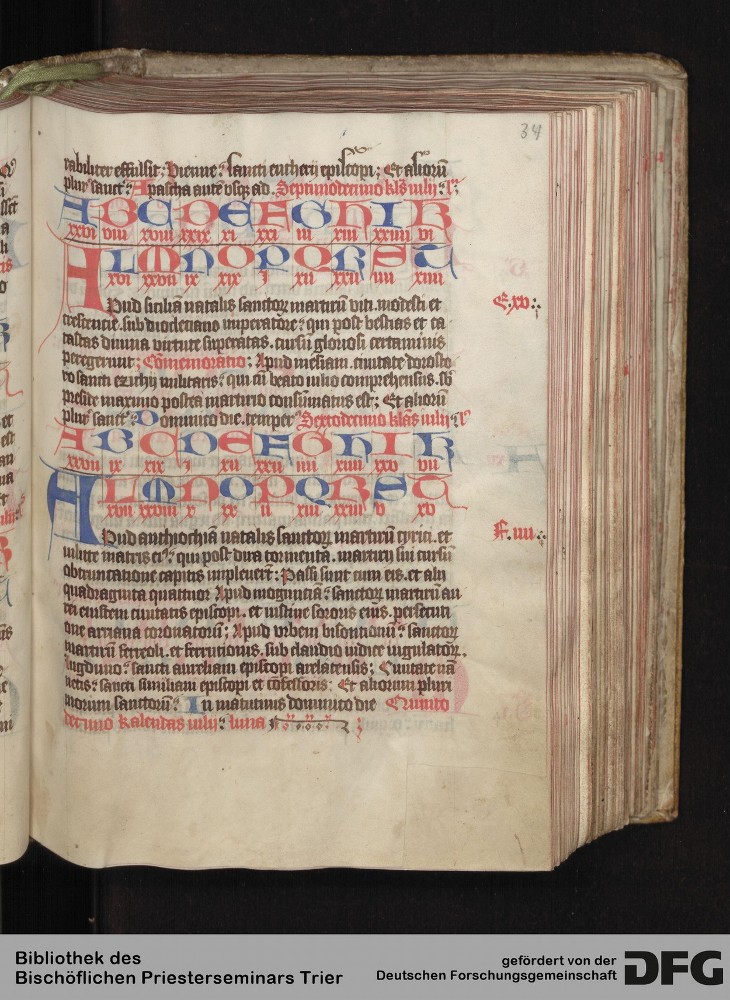 34
rabiliter effulsit : Vienne : sancti eucherij episcopi ; Et alioru
plur sanct : A pascha aute usq ad . Septimodecimo kls iulij : l
A B C D E F G H I K
xxvi viii xviii xxix xi xxi iii xiii xxiiii vi
L M N O P Q R S T
xvi xxvii ix xix i xii xxii iiii xiiii
Apud siciliā natalis sanctoꝝ martirū viti . modesti et
E . xv :
crescencie . sub diocletiano imperatore : qui post bestias et ca
tastas diuina virtute superatas . cursū gloriosi certaminis
peregerunt ; Comemoratio ; Apud mesiam . ciuitate dorosto
ro sancti ezichij militaris : qui cū beato iulio comprehensus . sb
preside maximo postea martirio consūmatus est ; Et alioru
plur sanct : Dominico die . temper Sextodecimo klas iulij : l
A B C D E F G H I K
xxvii ix xix i xii xxii iiii xiiii xxv vii
L M N O P Q R S T
xvii xxviii x xx ii xiii xxiii v xv
Apud anthiochiā natalis sanctoꝝ martirū cyrici . et
F . iiii :
iulitte matris ei : qui post dira tormenta . martirij sui cursū
obtruncatione capitis impleuert : Passi sunt cum eis . et alij
quadraginta quattuor Apud moguntiā : sanctoꝝ martirū au
rei eiusdem ciuitatis episcopi . et iustine sororis eius . persecuti
one arriana coronatorū ; Apud vrbem bisontionū : sanctoꝝ
martirū ferreoli . et ferrutionis . sub claudio iudice iugulatoꝝ .
Lugduno : sancti aureliani episcopi arelatensis ; Ciuitate nā
netis : sancti similiani episcopi et cōfessoris : Et aliorum pluri
morum sanctorū : In matutinis dominico die Quinto
decimo kalendas iulij : luna
Bibliothek des
Bischöflichen Priesterseminars Trier
gefördert von der
Deutschen Forschungsgemeinschaft
DFG